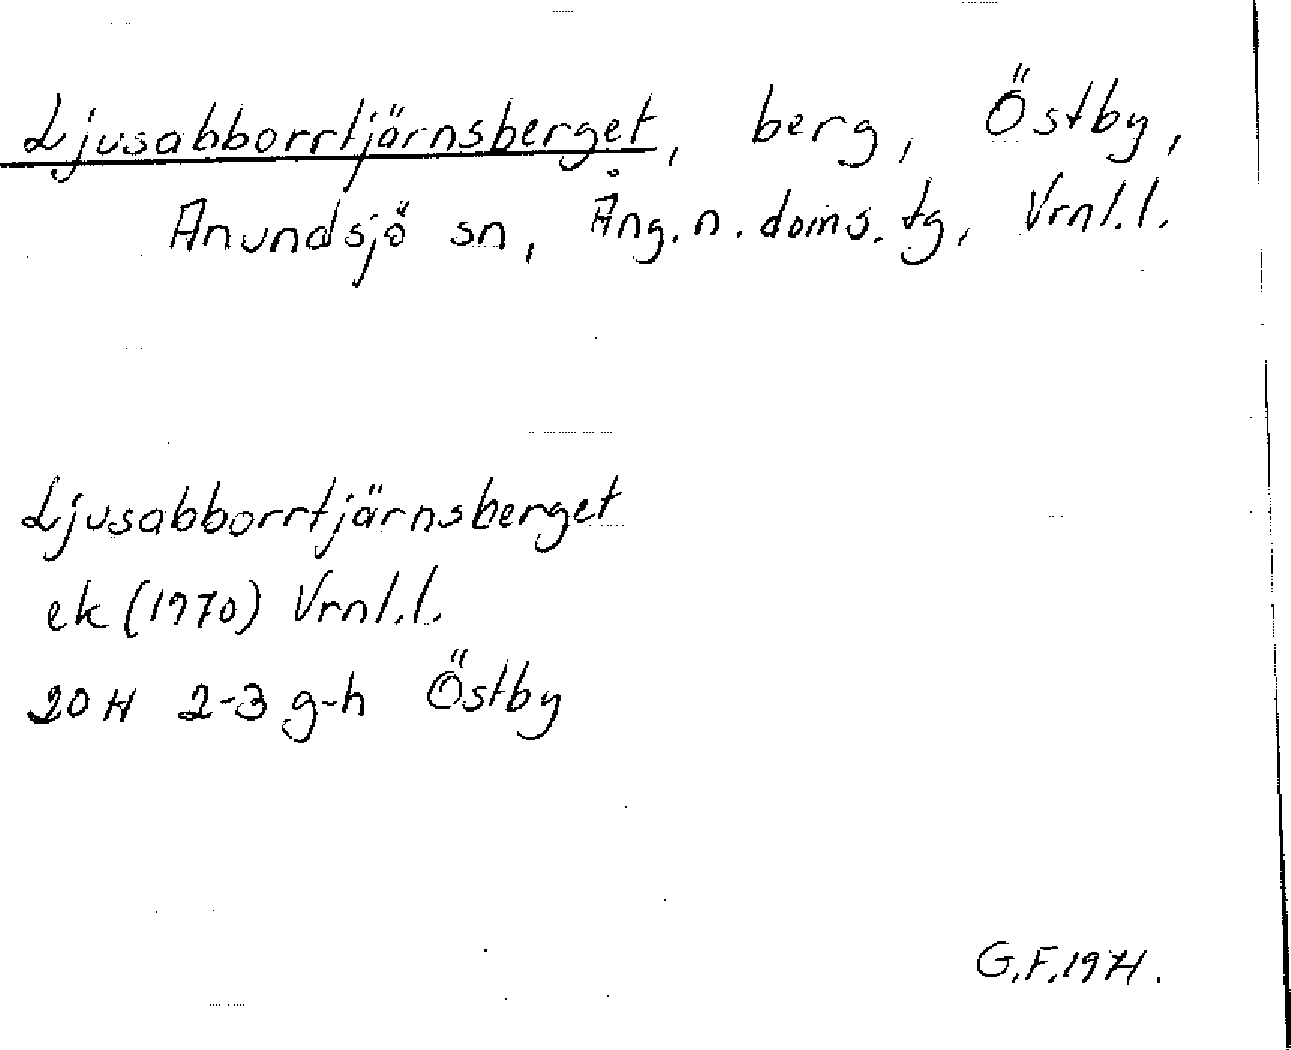 Ljusabborrtjärnsberget, berg, Östby,
Anundsjö sn, Ång. n. doms. tg, Vrnl. l.
Ljusabborrtjärnsberget
ek (1970) Vrnl. l.
20H 2-3 g-h Östby
G.F. 1974.